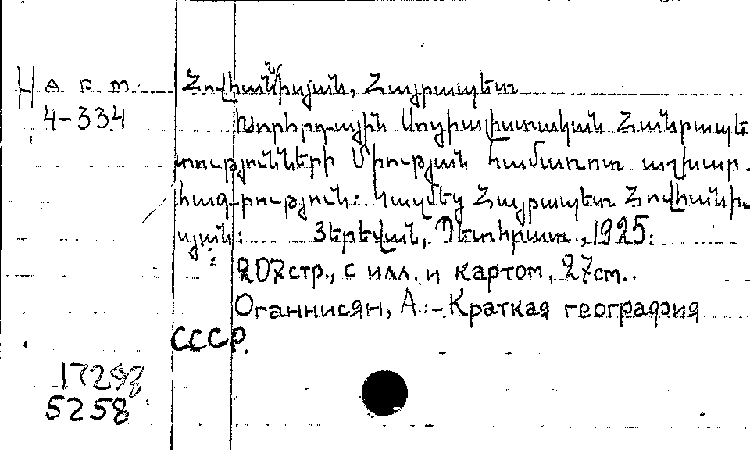 Н а г т. Հովհաննիսյան, Հայրապետ
4-334 Խորհրդային Սոցիալիստական Հանրապե
տությունների Միության համառոտ աշխար
հագրություն: Կազմեց Հայրապետ Հովհաննի
սյան: Յերեվան, Պետհրատ, 1925:
207стр., с илл. и картом, 27см.
Оганнисян, А. - Краткая география
СССР.
17298
5258